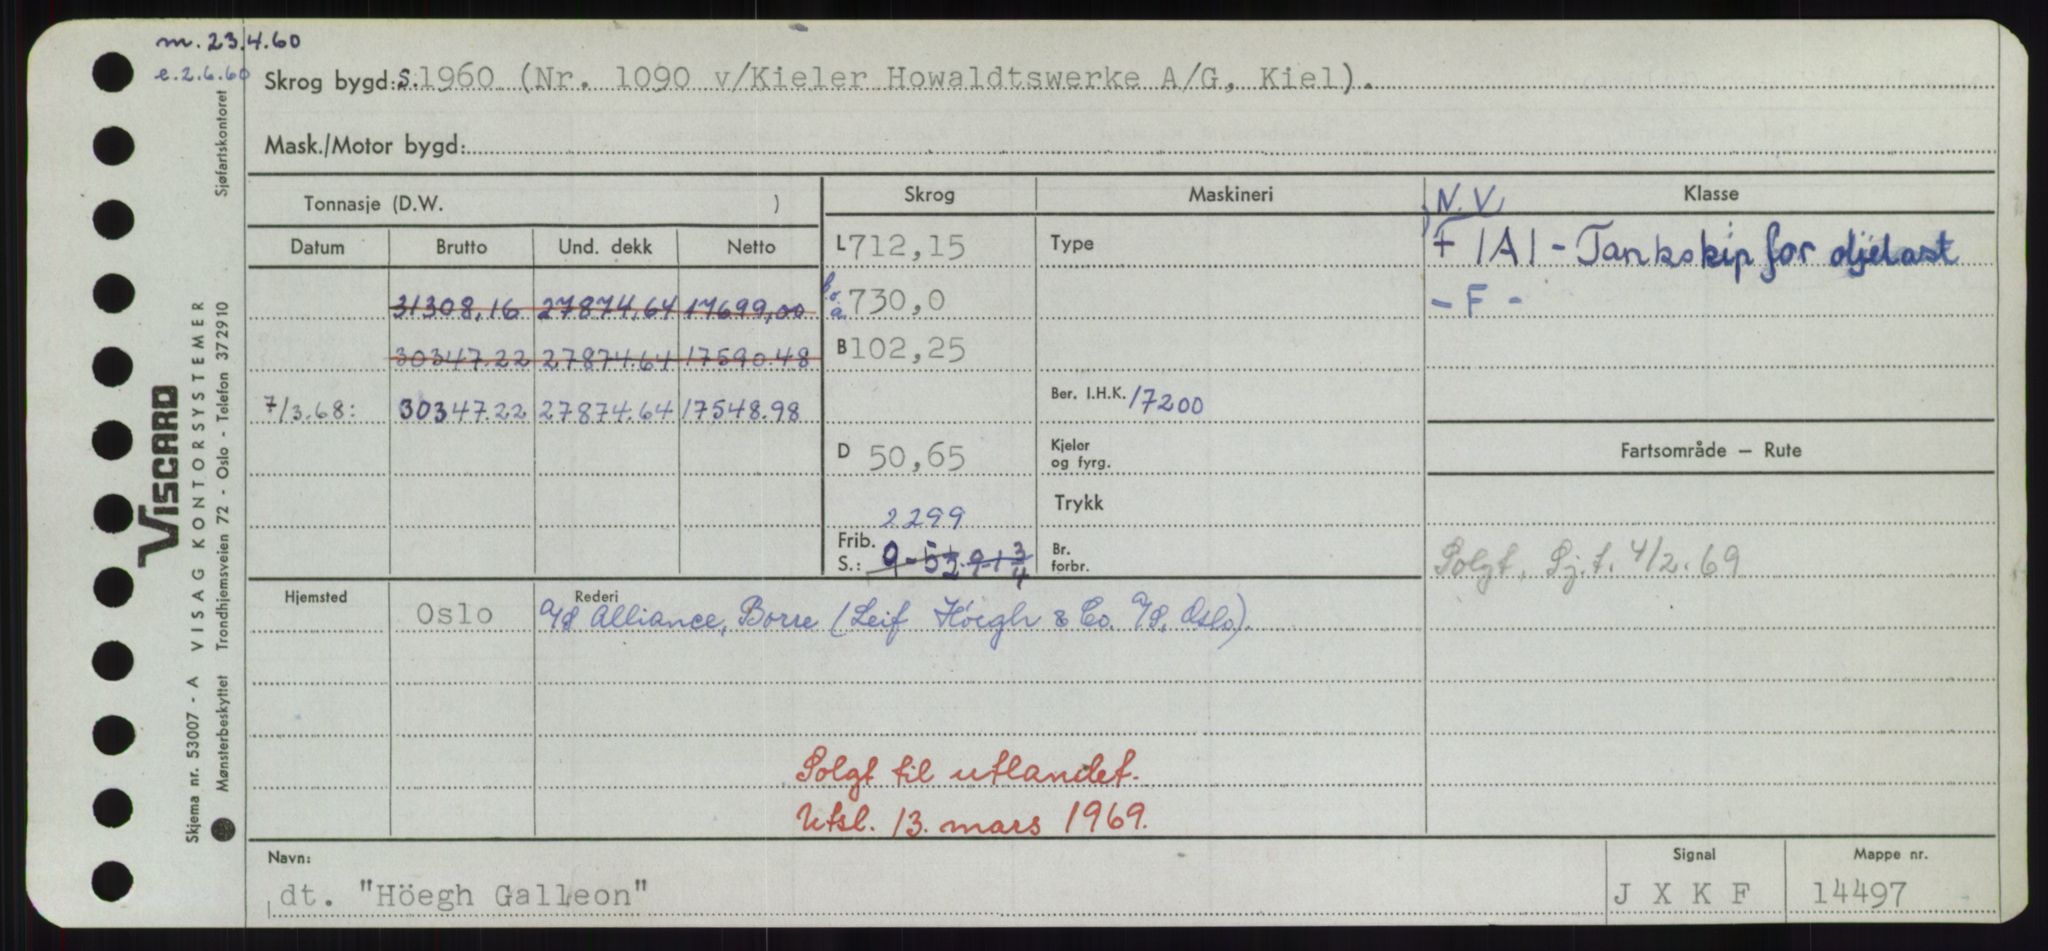 m. 23.4.60
e. 2.6.60
Skrog bygd: S. 1960 (Nr. 1090 v/Kieler Howaldtswerke A/G, Kiel).
Mask./Motor bygd:
Tonnasje (D.W. )
Skrog
Maskineri
Klasse
Datum Brutto Und. dekk Netto
L 712,15
Type
N.V.
+ 1A1 - Tankskip for oljelast
31308,16 27874,64 17699,00
b.o.a. 730,0
- F -
30347.22 27874.64 17590.48
B 102,25
7/3.68: 30347.22 27874.64 17548.98
Ber. I.H.K. 17200
D 50,65
Kjeler
og fyrg.
Fartsområde – Rute
2299
Trykk
Frib.
S.: 9-5½ 9-1¾
Br.
forbr.
Solgt, Sj.f. 4/2.69
Hjemsted
Oslo
Rederi
A/S Alliance, Borre (Leif Höegh & Co. A/S, Oslo).
Solgt til utlandet.
Utsl. 13. mars 1969.
Navn:
dt. "Höegh Galleon"
Signal
J X K F
Mappe nr.
14497
VISCARD
Skjema nr. 53007 - A VISAG KONTORSYSTEMER
Mønsterbeskyttet Trondhjemsveien 72 - Oslo - Telefon 372910
Sjøfartskontoret